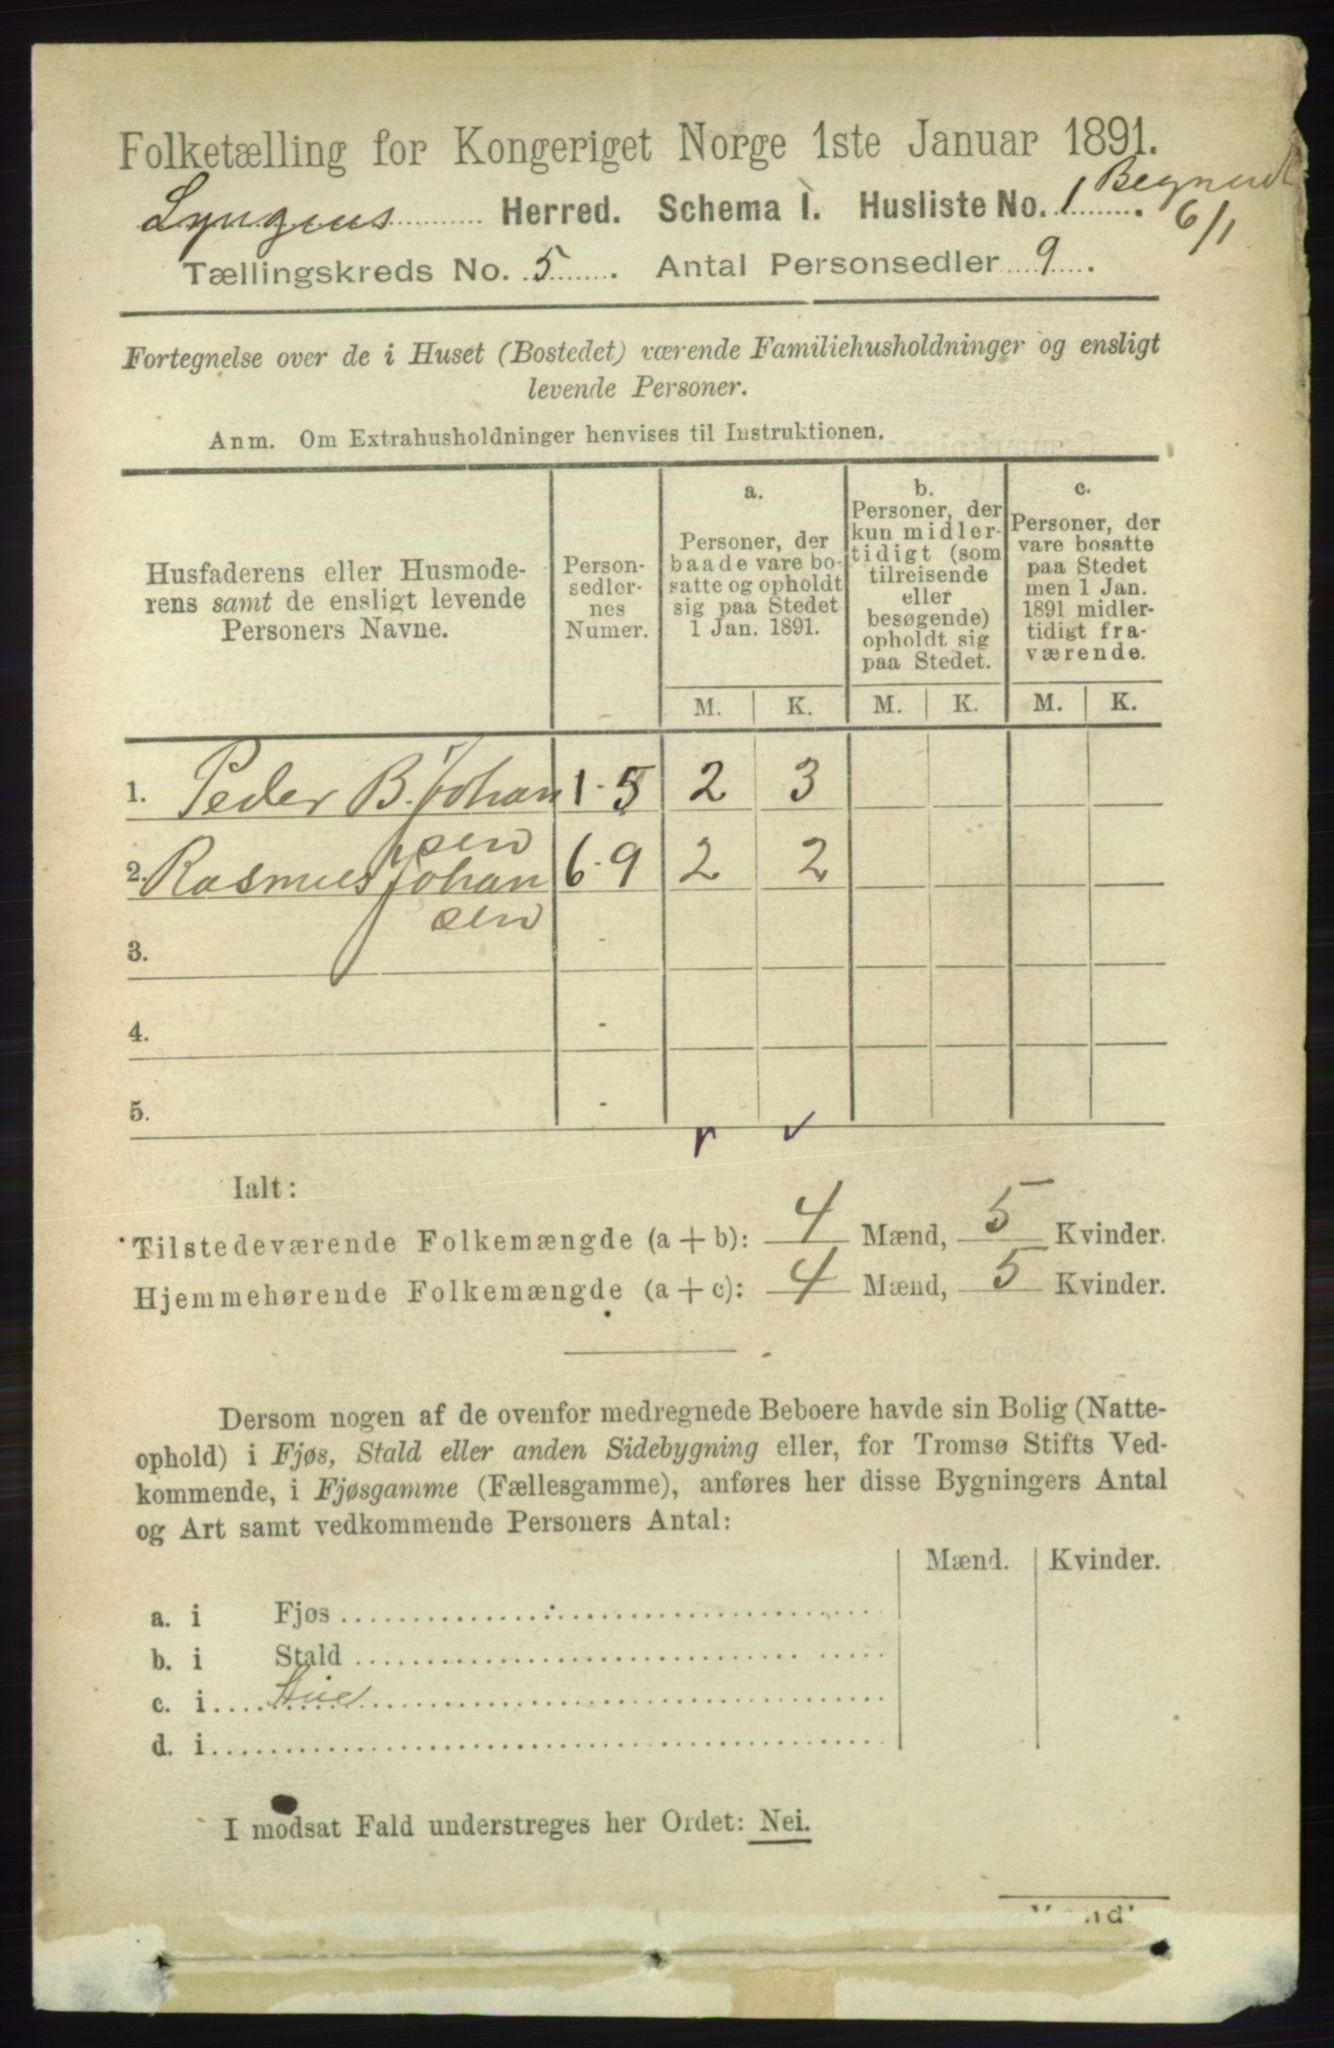 Folketælling for Kongeriget Norge 1ste Januar 1891.
Begyndt
Lyngens Herred. Schema I. Husliste No. 1.
6/1
Tællingskreds No. 5. Antal Personsedler 9.
Fortegnelse over de i Huset (Bostedet) værende Familiehusholdninger og ensligt
levende Personer.
Anm. Om Extrahusholdninger henvises til Instruktionen.
Husfaderens eller Husmode-
rens samt de ensligt levende
Personers Navne.
Person-
sedler-
nes
Numer.
a.
Personer, der
baade vare bo-
satte og opholdt
sig paa Stedet
1 Jan. 1891.
b.
Personer, der
kun midler-
tidigt (som
tilreisende
eller
besøgende)
opholdt sig
paa Stedet.
c.
Personer, der
vare bosatte
paa Stedet
men 1 Jan.
1891 midler-
tidigt fra-
værende.
M. K. M. K. M. K.
1. Peder B. Johan 1-5 2 3
sen
2. Rasmus Johan 6-9 2 2
sen
3. -
4. -
5. -
Ialt:
Tilstedeværende Folkemængde (a + b): 4 Mænd, 5 Kvinder.
Hjemmehørende Folkemængde (a + c): 4 Mænd, 5 Kvinder.
Dersom nogen af de ovenfor medregnede Beboere havde sin Bolig (Natte-
ophold) i Fjøs, Stald eller anden Sidebygning eller, for Tromsø Stifts Ved-
kommende, i Fjøsgamme (Fællesgamme), anføres her disse Bygningers Antal
og Art samt vedkommende Personers Antal:
Mænd. Kvinder.
a. i Fjøs
b. i Stald
c. i
d. i
I modsat Fald understreges her Ordet: Nei.